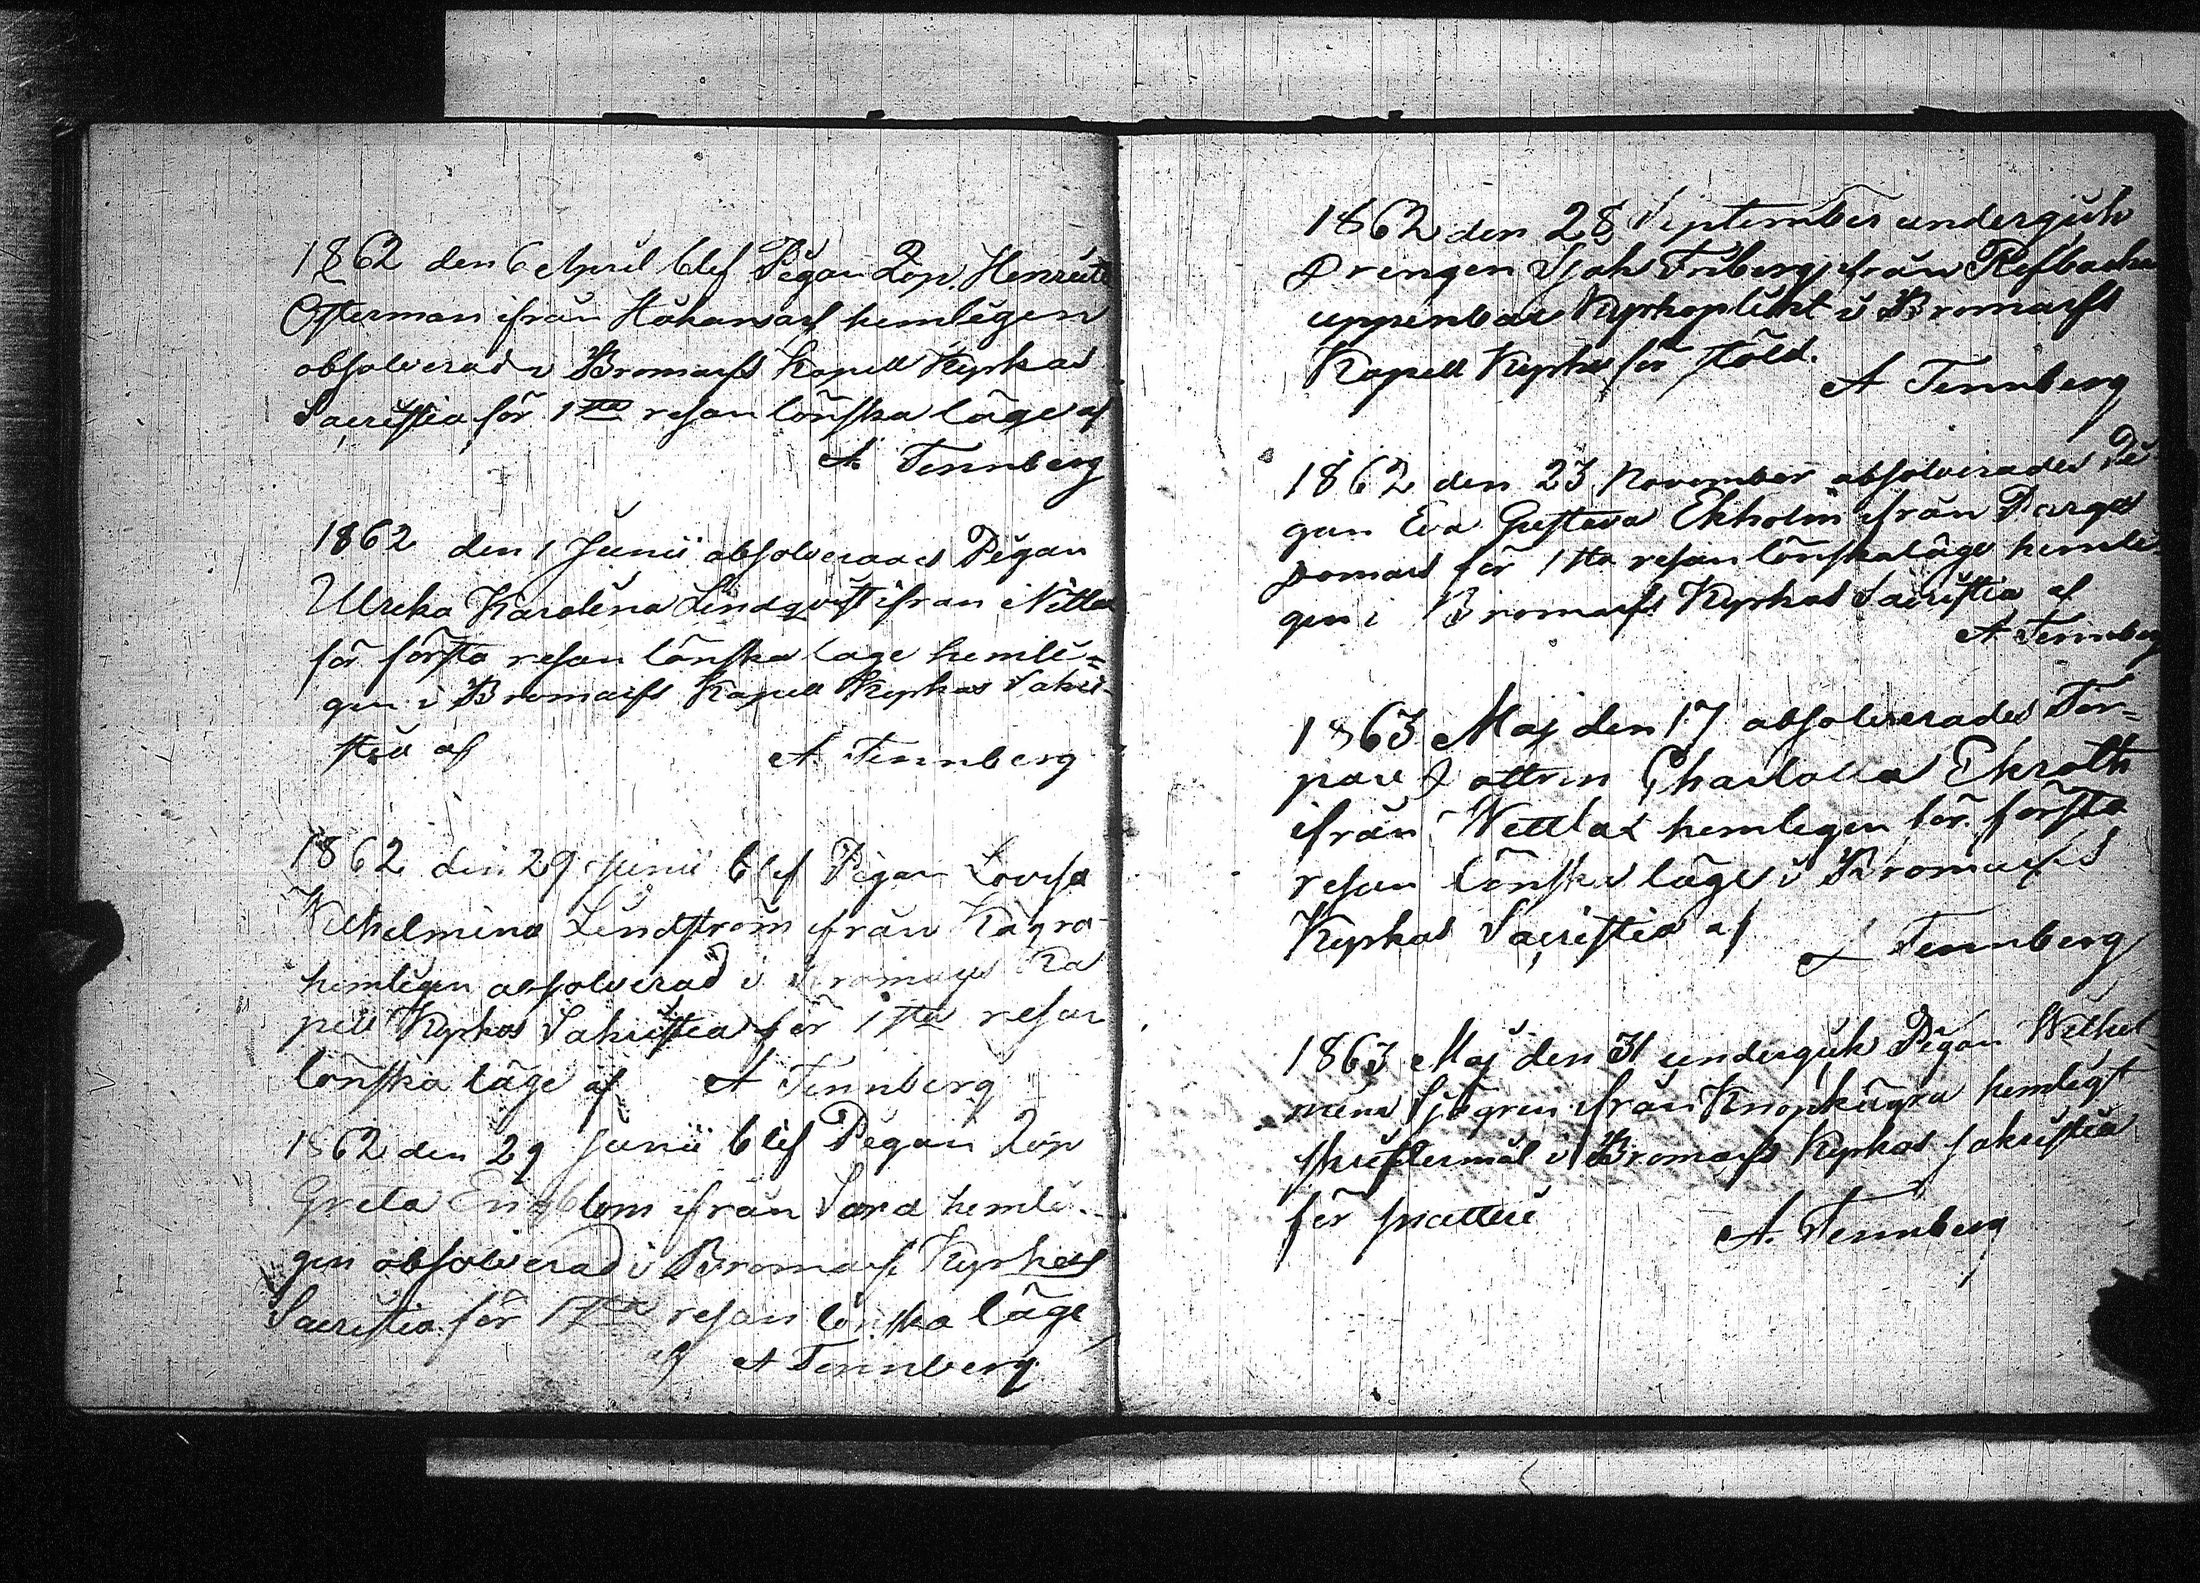 1862 den 6 April blef Pigan Sop. Henriet
Österman ifrån Håkansarf hemligen
absolverad i Bromarfs Kapell Kyrkas
Sacristia för 1sta resan lönska läge af
A. Tennberg
1862 den 1 Junii absolverades Pigan
Ulrika Karolina Lindqvist ifrån Nitlax
för första resan lönska läge hemli=
gen i Bromarfs Kapell Kyrkas Sakri-
stia af A. Tennberg
1862 den 29 Junii blef Pigan Lovisa
Wilhelmina Lindström ifrån Kägra
hemligen absolverad i Bromarfs Ka
pell Kyrkas Sakristia för 1sta resan
lönska läge af A Tennberg
1862 den 29 Junii blef Pigan
Greta Engblom ifrån hemli-
gen absolverad i Bromarf Kyrkas
Sacristia för 1sta resan lönska läge
af A Tennberg
1862 den 28 September undergick
Drengen Isak Friberg ifrån Refbacka
uppenbar Kyrkoplikt i Bromarfs
Kapell Kyrka för stöld.
A Tennberg
1862 den 23 November absolverades Pi
gan Eva Gustava Ekholm ifrån Parga
för 1sta resan lönskaläge hemli
gen i Bromarfs Kyrkas Sacristia af
A Tennberg
1863 Maj den 17 absolverades Tor=
pare Dottren Charlotta Ekroth
ifrån Wettlax hemligen för första
resan lönska läge i Bromarfs
Kyrkas Sacristia af A Tennberg
1863 Maj den 31 undergick Pigan Wilhel
mina Sjögren ifrån Knopkägra hemligt
skriftermål i Bromarfs Kyrkas sakristia
för snatteri A. Tennberg